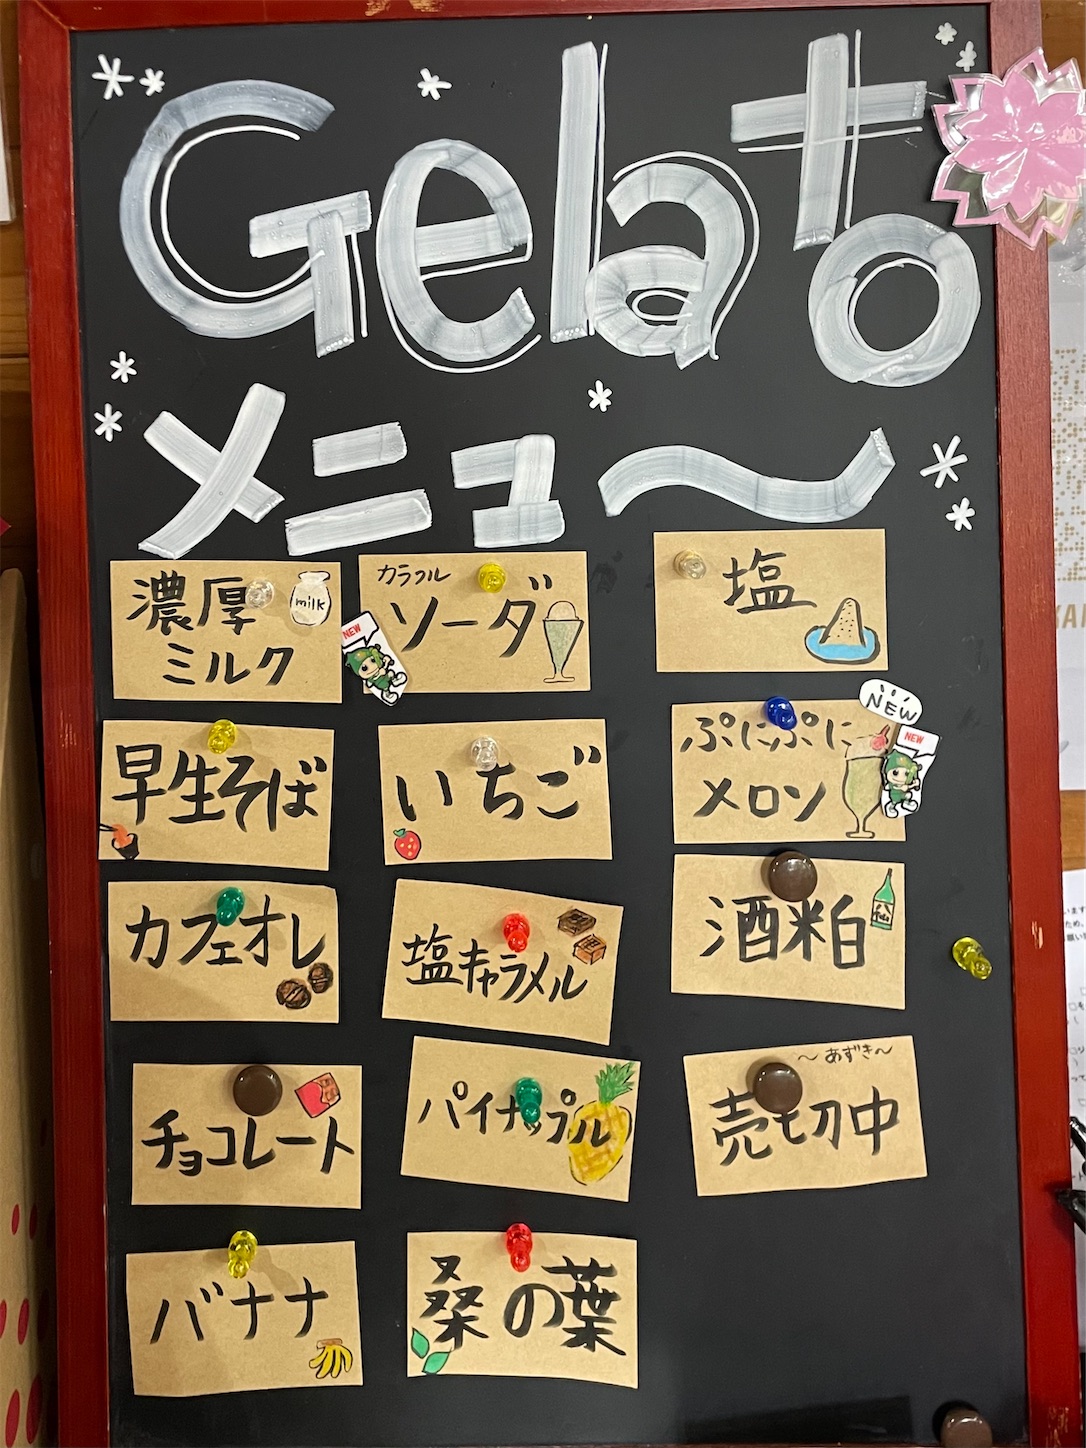 Gelato
メニュ〜
濃厚
ミルク
milk
カラフル
ソーダ
NEW
塩
早生そば
いちご
ぷにぷに
メロン
NEW
NEW
カフェオレ
塩キャラメル
酒粕
チョコレート
パイナップル
〜あずき〜
売切中
バナナ
桑の葉